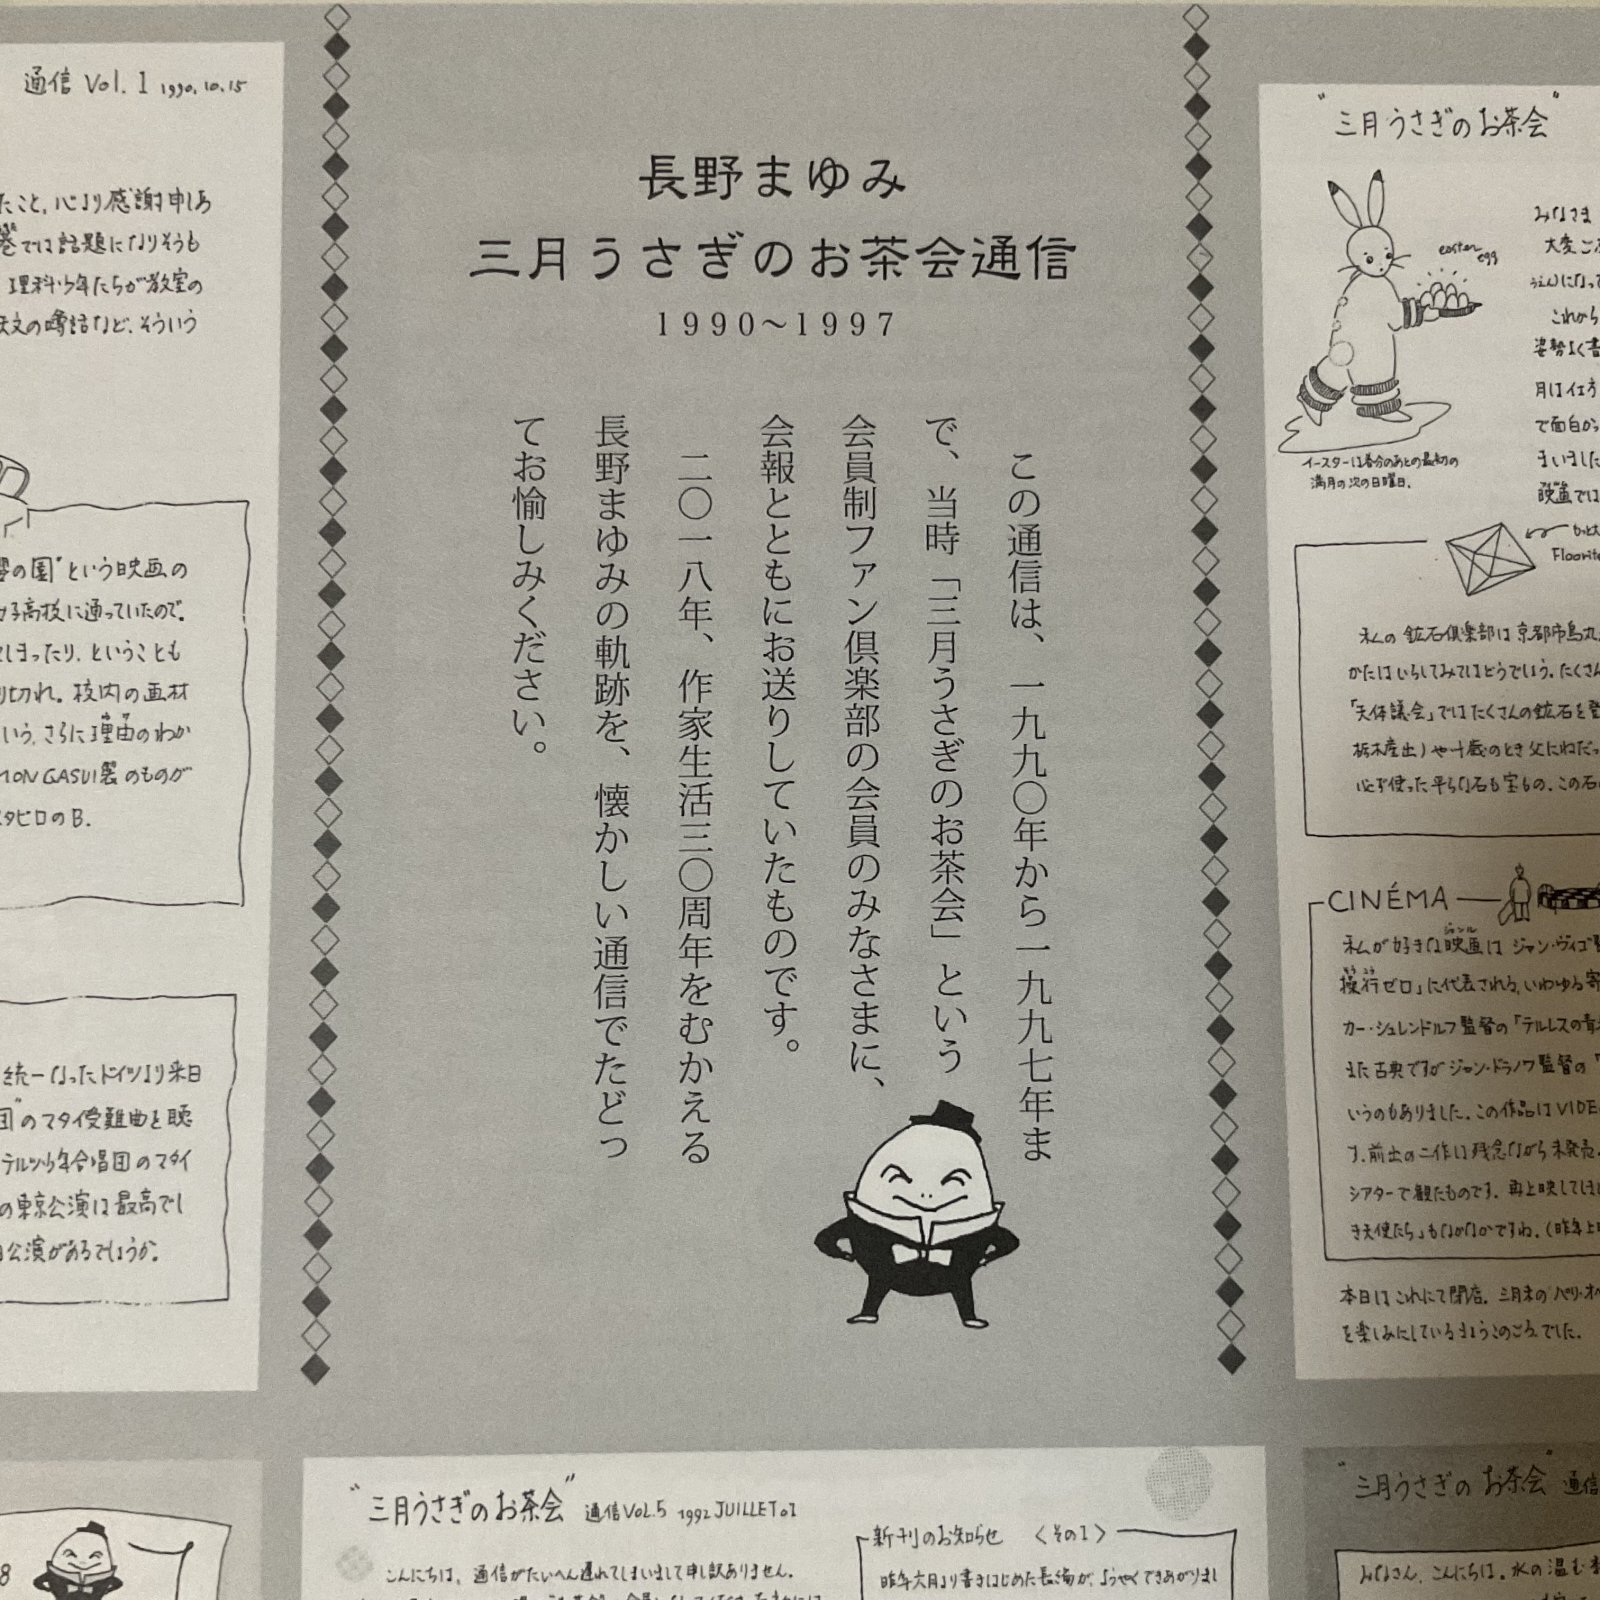 長野まゆみ
三月うさぎのお茶会通信
1990～1997
この通信は、一九九〇年から一九九七年ま
で、当時「三月うさぎのお茶会」という
会員制ファン倶楽部の会員のみなさまに、
会報とともにお送りしていたものです。
二〇一八年、作家生活三〇周年をむかえる
長野まゆみの軌跡を、懐かしい通信でたどっ
てお愉しみください。
通信 Vol. 1 1990.10.15
たこと, 心より感謝申しあ
では話題になりそうも
理科少年たちが教室の
天文の噂話など、そういう
の園"という映画の
女子高校に通っていたので、
てしまったり、ということも
り切れ。校内の画材
いう、さらに理由のわか
MON GASUI製のものが
スタビロのB.
統一なったドイツより来日
団"のマタイ受難曲を聴
テルツ少年合唱団のマタイ
の東京公演は最高でし
公演があるでしょうか。
"三月うさぎのお茶会"
みなさま
easter egg
イースターは春分のあとの最初の
満月の次の日曜日.
大変ご
これから
姿勢よく書
で面白か
まいました
映画では
私の鉱石倶楽部は京都市烏丸
かたはいらしてみてはどうでしょう. たくさん
「天体議会」ではたくさんの鉱石を登
栃木産出)や十歳のとき父にねだっ
必ず使った平らな石も宝もの. この石
CINÉMA
私が好きな映画は ジャン・ヴィゴ監
ジャンル
操行ゼロ」に代表される, いわゆる寄
カー・シュレンドルフ監督の「テルレスの青
また古典ですがジャン・ドラノワ監督の「
いうのもありました. この作品はVIDE
す. 前出の二作は残念ながら未発売
シアターで観たものです. 再上映してほし
き天使たち」もなかなかですね. (昨年上
本日はこれにて閉店. 三月末のパリ・オペ
を楽しみにしているきょうこのごろでした.
"三月うさぎのお茶会" 通信Vol.5 1992 JUILLET 01
こんにちは, 通信がたいへん遅れてしまいまして申し訳ありません.
新刊のお知らせ 〈その1〉
昨年六月より書きはじめた長編が, ようやくできあがりまし
"三月うさぎのお茶会" 通信
みなさん, こんにちは. 水の温む